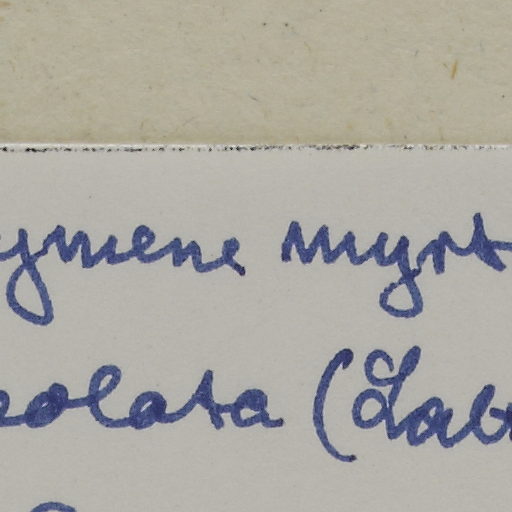 ymene myrt
eolata (Lab